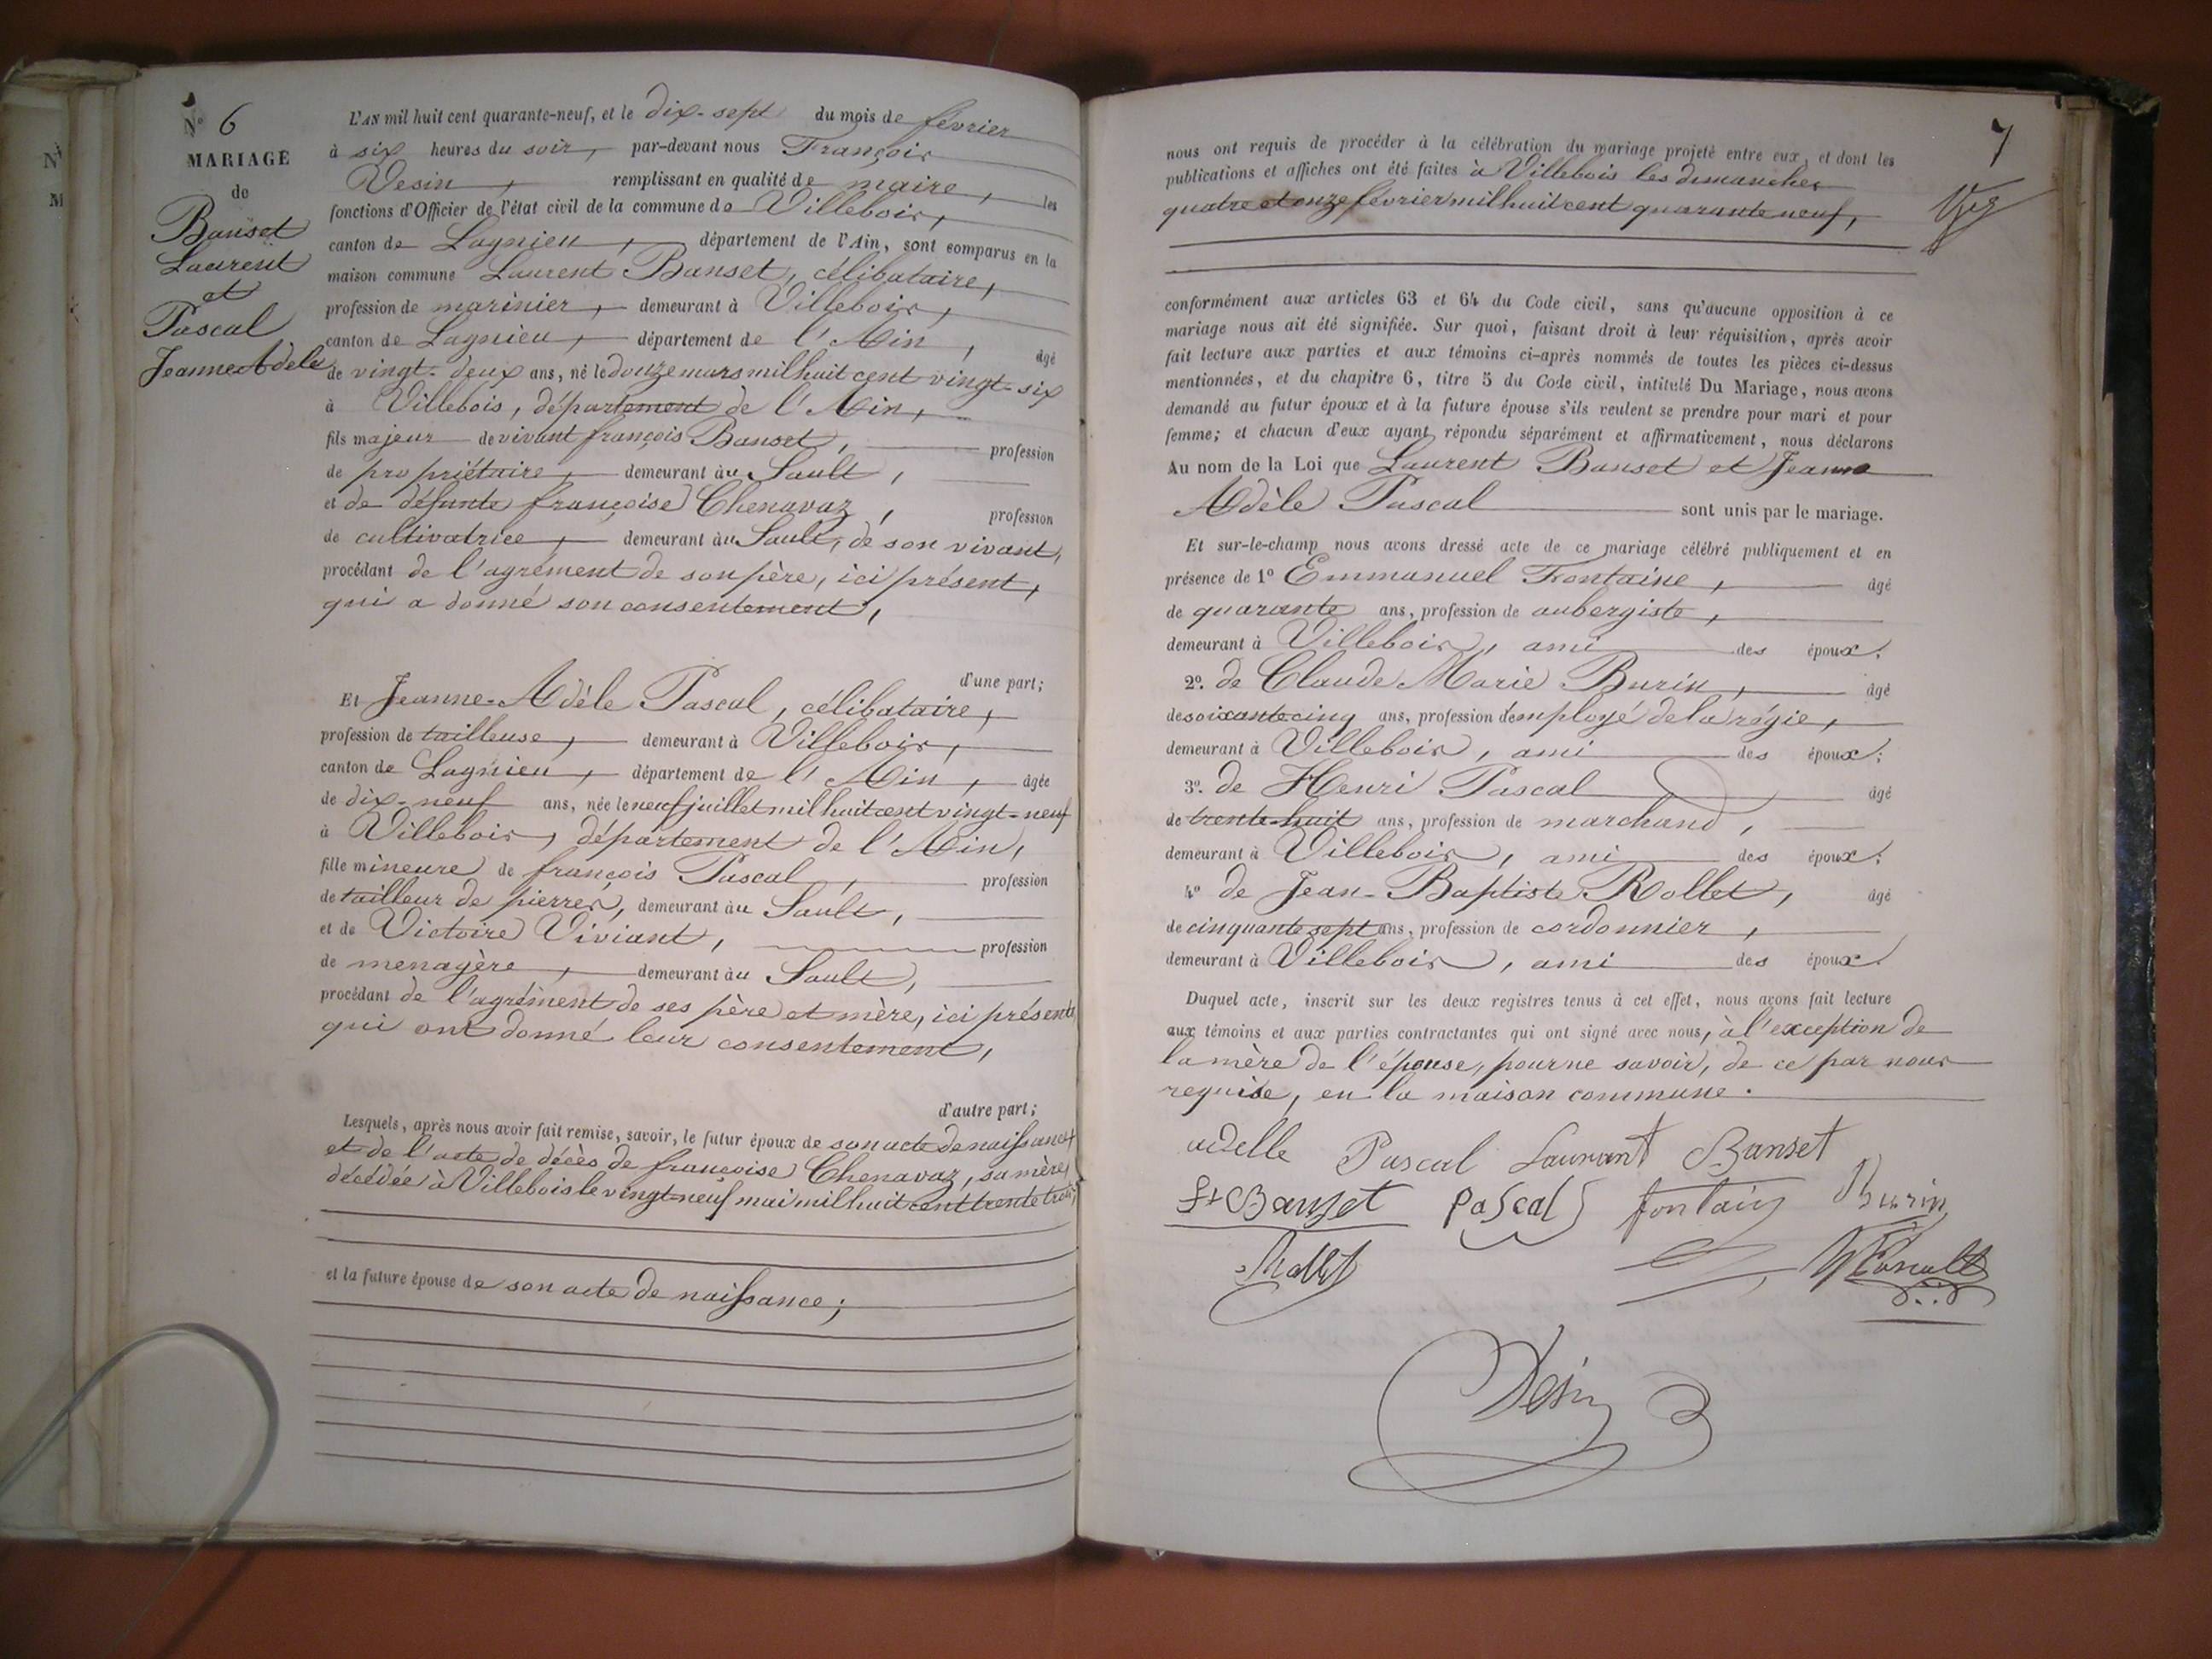 N° 6
MARIAGE
de
Banset
Laurent
et
Pascal
Jeanne Adèle
L'AN mil huit cent quarante-neuf, et le dix-sept du mois de février
à six heures du soir, par-devant nous François
Vesin, remplissant en qualité de maire, les
fonctions d'Officier de l'état civil de la commune de Villebois,
canton de Lagnieu, département de l'Ain, sont comparus en la
maison commune Laurent Banset, célibataire,
profession de marinier, demeurant à Villebois,
canton de Lagnieu, département de l'Ain, âgé
de vingt-deux ans, né le douze mars mil huit cent vingt-six
à Villebois, département de l'Ain,
fils majeur de vivant françois Banset, profession
de propriétaire, demeurant au Sault,
et de défunte françoise Chenavaz, profession
de cultivatrice, demeurant au Sault, de son vivant,
procédant de l'agrément de son père, ici présent,
qui a donné son consentement,
d'une part;
Et Jeanne-Adèle Pascal, célibataire,
profession de tailleuse, demeurant à Villebois,
canton de Lagnieu, département de l'Ain, âgée
de dix-neuf ans, née le neuf juillet mil huit cent vingt-neuf
à Villebois, département de l'Ain,
fille mineure de françois Pascal, profession
de tailleur de pierres, demeurant au Sault,
et de Victoire Viviant, profession
de menagère, demeurant au Sault,
procédant de l'agrément de ses père et mère, ici présents
qui ont donné leur consentement,
d'autre part;
Lesquels, après nous avoir fait remise, savoir, le futur époux de son acte de naissance
et de l'acte de décès de françoise Chenavaz, sa mère,
décédée à Villebois le vingt-neuf mai mil huit cent trente trois;
et la future épouse de son acte de naissance;
7
nous ont requis de procéder à la célébration du mariage projeté entre eux, et dont les
publications et affiches ont été faites à Villebois les dimanches
quatre et onze février mil huit cent quarante neuf,
conformément aux articles 63 et 64 du Code civil, sans qu'aucune opposition à ce
mariage nous ait été signifiée. Sur quoi, faisant droit à leur réquisition, après avoir
fait lecture aux parties et aux témoins ci-après nommés de toutes les pièces ci-dessus
mentionnées, et du chapitre 6, titre 5 du Code civil, intitulé Du Mariage, nous avons
demandé au futur époux et à la future épouse s'ils veulent se prendre pour mari et pour
femme; et chacun d'eux ayant répondu séparément et affirmativement, nous déclarons
Au nom de la Loi que Laurent Banset et Jeanne
Adèle Pascal sont unis par le mariage.
Et sur-le-champ nous avons dressé acte de ce mariage célébré publiquement et en
présence de 1° Emmanuel Fontaine, âgé
de quarante ans, profession de aubergiste,
demeurant à Villebois, ami des époux;
2° de Claude Marie Burin, âgé
de soixante cinq ans, profession d'employé de la régie,
demeurant à Villebois, ami des époux;
3° de Henri Pascal âgé
de trente-huit ans, profession de marchand,
demeurant à Villebois, ami des époux;
4° de Jean-Baptiste Rollet, âgé
de cinquante sept ans, profession de cordonnier,
demeurant à Villebois, ami des époux.
Duquel acte, inscrit sur les deux registres tenus à cet effet, nous avons fait lecture
aux témoins et aux parties contractantes qui ont signé avec nous, à l'exception de
la mère de l'épouse, pour ne savoir, de ce par nous
requise, en la maison commune.
adelle Pascal Laurant Banset
Banset Pascal fontain Burin
Rollet
Vesin